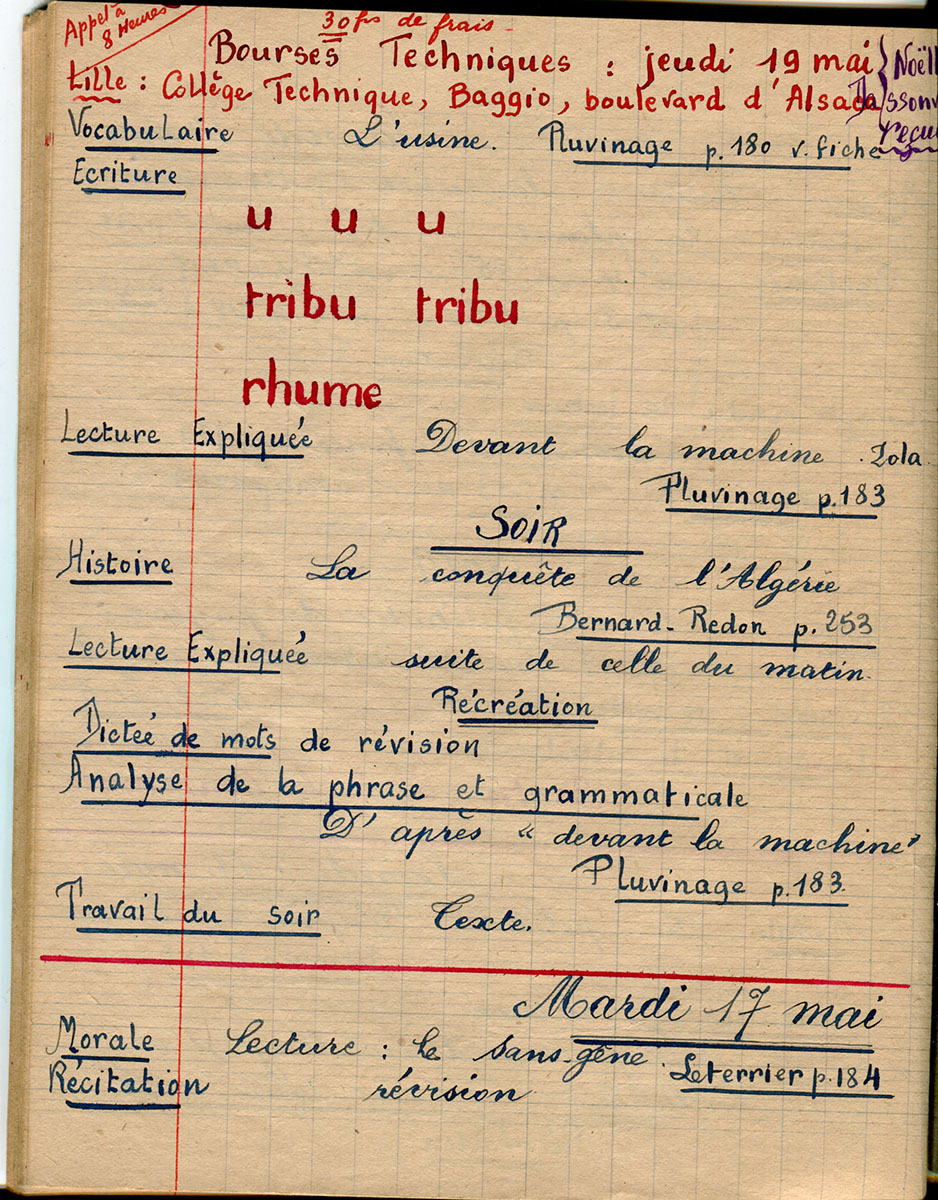 Appel à
8 Heures
30 frs de frais
Bourses Techniques : jeudi 19 mai } Noëll
Lille : Collège Technique, Baggio, boulevard d'Alsace
reçu
Vocabulaire L'usine. Pluvinage p. 180 v. fiche
Ecriture
u u u
tribu tribu
rhume
Lecture Expliquée Devant la machine. Zola
Pluvinage p. 183
SOIR
Histoire La conquête de l'Algérie
Bernard-Redon p. 253
Lecture Expliquée suite de celle du matin.
Récréation
Dictée de mots de révision
Analyse de la phrase et grammaticale
D'après "devant la machine"
Pluvinage p. 183.
Travail du soir Texte.
Mardi 17 mai
Morale Lecture : le sans-gêne. Leterrier p. 184
Récitation révision